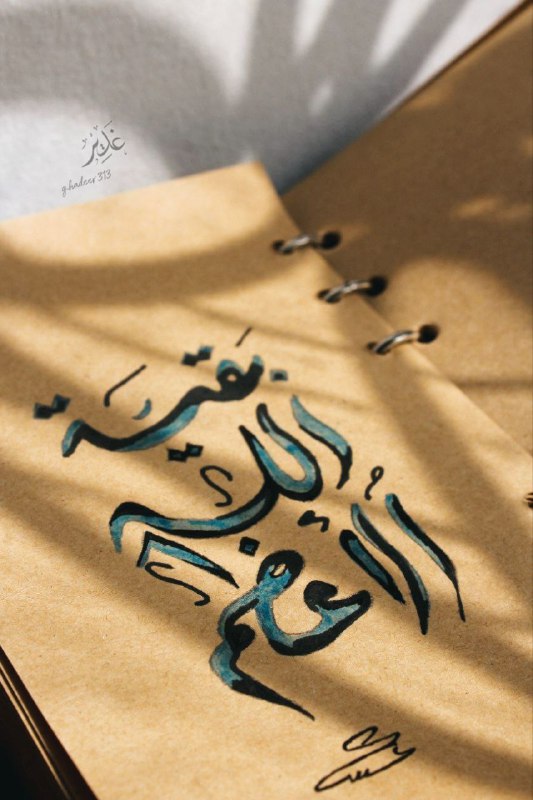 غدير
g.hadeer313
بقية
الله
الأعظم